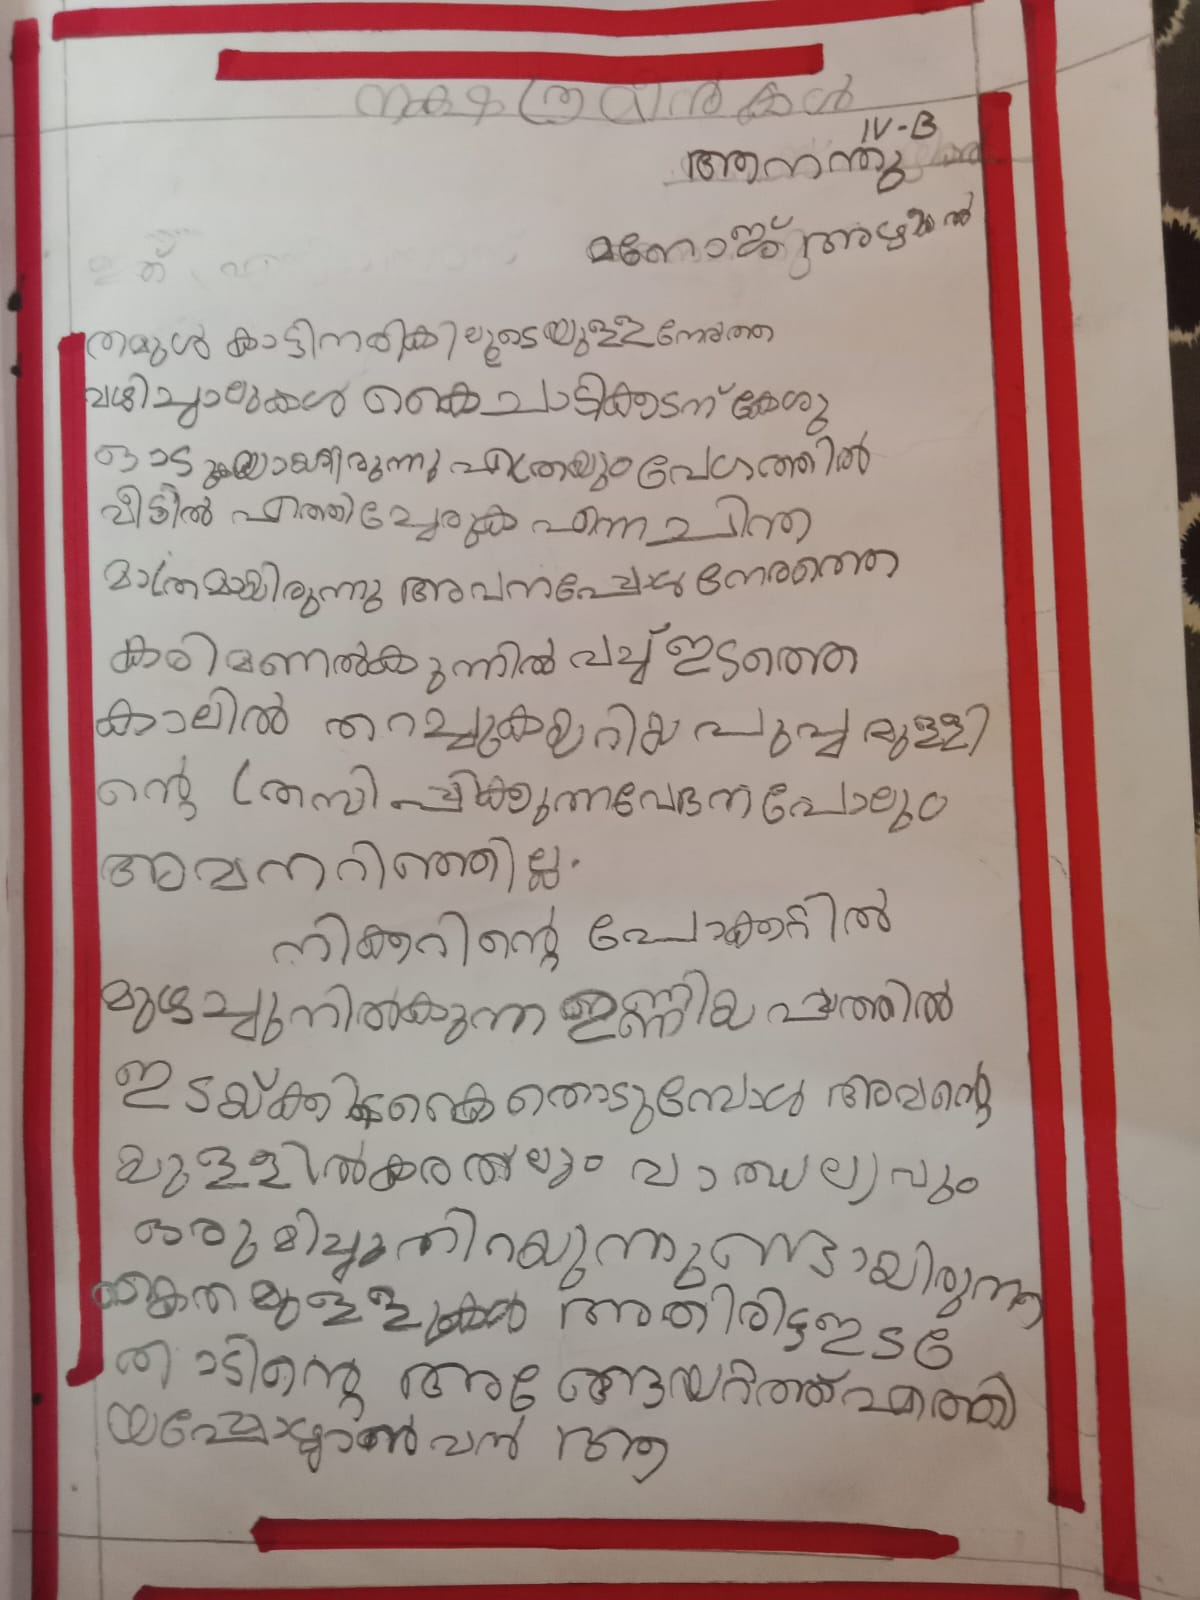 നക്ഷത്രവിൻകൾ
IV-B
ആനന്തു
മനോജ്
തമുൾ കാട്ടിനരികിലൂടെയുള്ള നേർത്ത
വഴിച്ചാലുകൾ കൈ ചാടിക്കടന്ന് കേശു
ഓടുകയായിരുന്നു എത്രയും വേഗത്തിൽ
വീട്ടിൽ എത്തിച്ചേരുക എന്ന ചിന്ത
മാത്രമായിരുന്നു അവനപ്പോൾ നേരത്തെ
കരിമണൽകുന്നിൽ വച്ച് ഇടത്തെ
കാലിൽ തറച്ചുകയറിയ പുപ്പമുള്ളി
ന്റെ ത്രസിപ്പിക്കുന്ന വേദന പോലും
അവനറിഞ്ഞില്ല.
നിക്കറിന്റെ പോക്കറ്റിൽ
മുഴച്ചുനിൽകുന്ന ഇണ്ണിയപ്പത്തിൽ
ഇടയ്ക്കിടക്കൈ തൊടുമ്പോൾ അവന്റെ
യുള്ളിൽ കരതലും വാത്സല്യവും
ഒരുമിച്ചു നിറയുന്നുണ്ടായിരുന്നു
കൈതമുള്ളുകൾ അതിരിട്ട ഇടതേ
താടിന്റെ അങ്ങേയറ്റത്ത് എത്തി
യപ്പോഴാണവൻ ആ